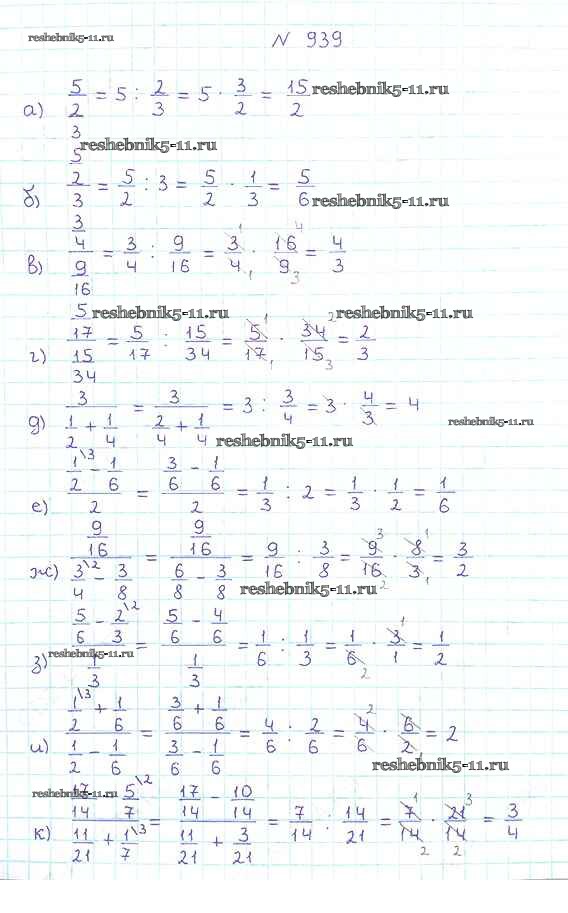 reshebnik5-11.ru N 939
а) 5/(2/3) = 5 : 2/3 = 5 · 3/2 = 15/2 reshebnik5-11.ru
reshebnik5-11.ru
б) (5/2)/3 = 5/2 : 3 = 5/2 · 1/3 = 5/6 reshebnik5-11.ru
в) (3/4)/(9/16) = 3/4 : 9/16 = 3/4 · 16/9 = 4/3 1 1 4 3
reshebnik5-11.ru reshebnik5-11.ru
г) (5/17)/(15/34) = 5/17 : 15/34 = 5/17 · 34/15 = 2/3 1 1 2 3
д) 3/(1/2 + 1/4) = 3/(2/4 + 1/4) = 3 : 3/4 = 3 · 4/3 = 4 reshebnik5-11.ru
reshebnik5-11.ru
е) (1/2\3 - 1/6)/2 = (3/6 - 1/6)/2 = 1/3 : 2 = 1/3 · 1/2 = 1/6
ж) (9/16)/(3/4\2 - 3/8) = (9/16)/(6/8 - 3/8) = 9/16 : 3/8 = 9/16 · 8/3 = 3/2 3 2 1 1
reshebnik5-11.ru
з) (5/6 - 2/3\2)/(1/3) = (5/6 - 4/6)/(1/3) = 1/6 : 1/3 = 1/6 · 3/1 = 1/2 2 1
reshebnik5-11.ru
и) (1/2\3 + 1/6)/(1/2 - 1/6) = (3/6 + 1/6)/(3/6 - 1/6) = 4/6 : 2/6 = 4/6 · 6/2 = 2 2 1
reshebnik5-11.ru
reshebnik5-11.ru
к) (17/14 - 5/7\2)/(11/21 + 1/7\3) = (17/14 - 10/14)/(11/21 + 3/21) = 7/14 : 14/21 = 7/14 · 21/14 = 3/4 1 2 3 2